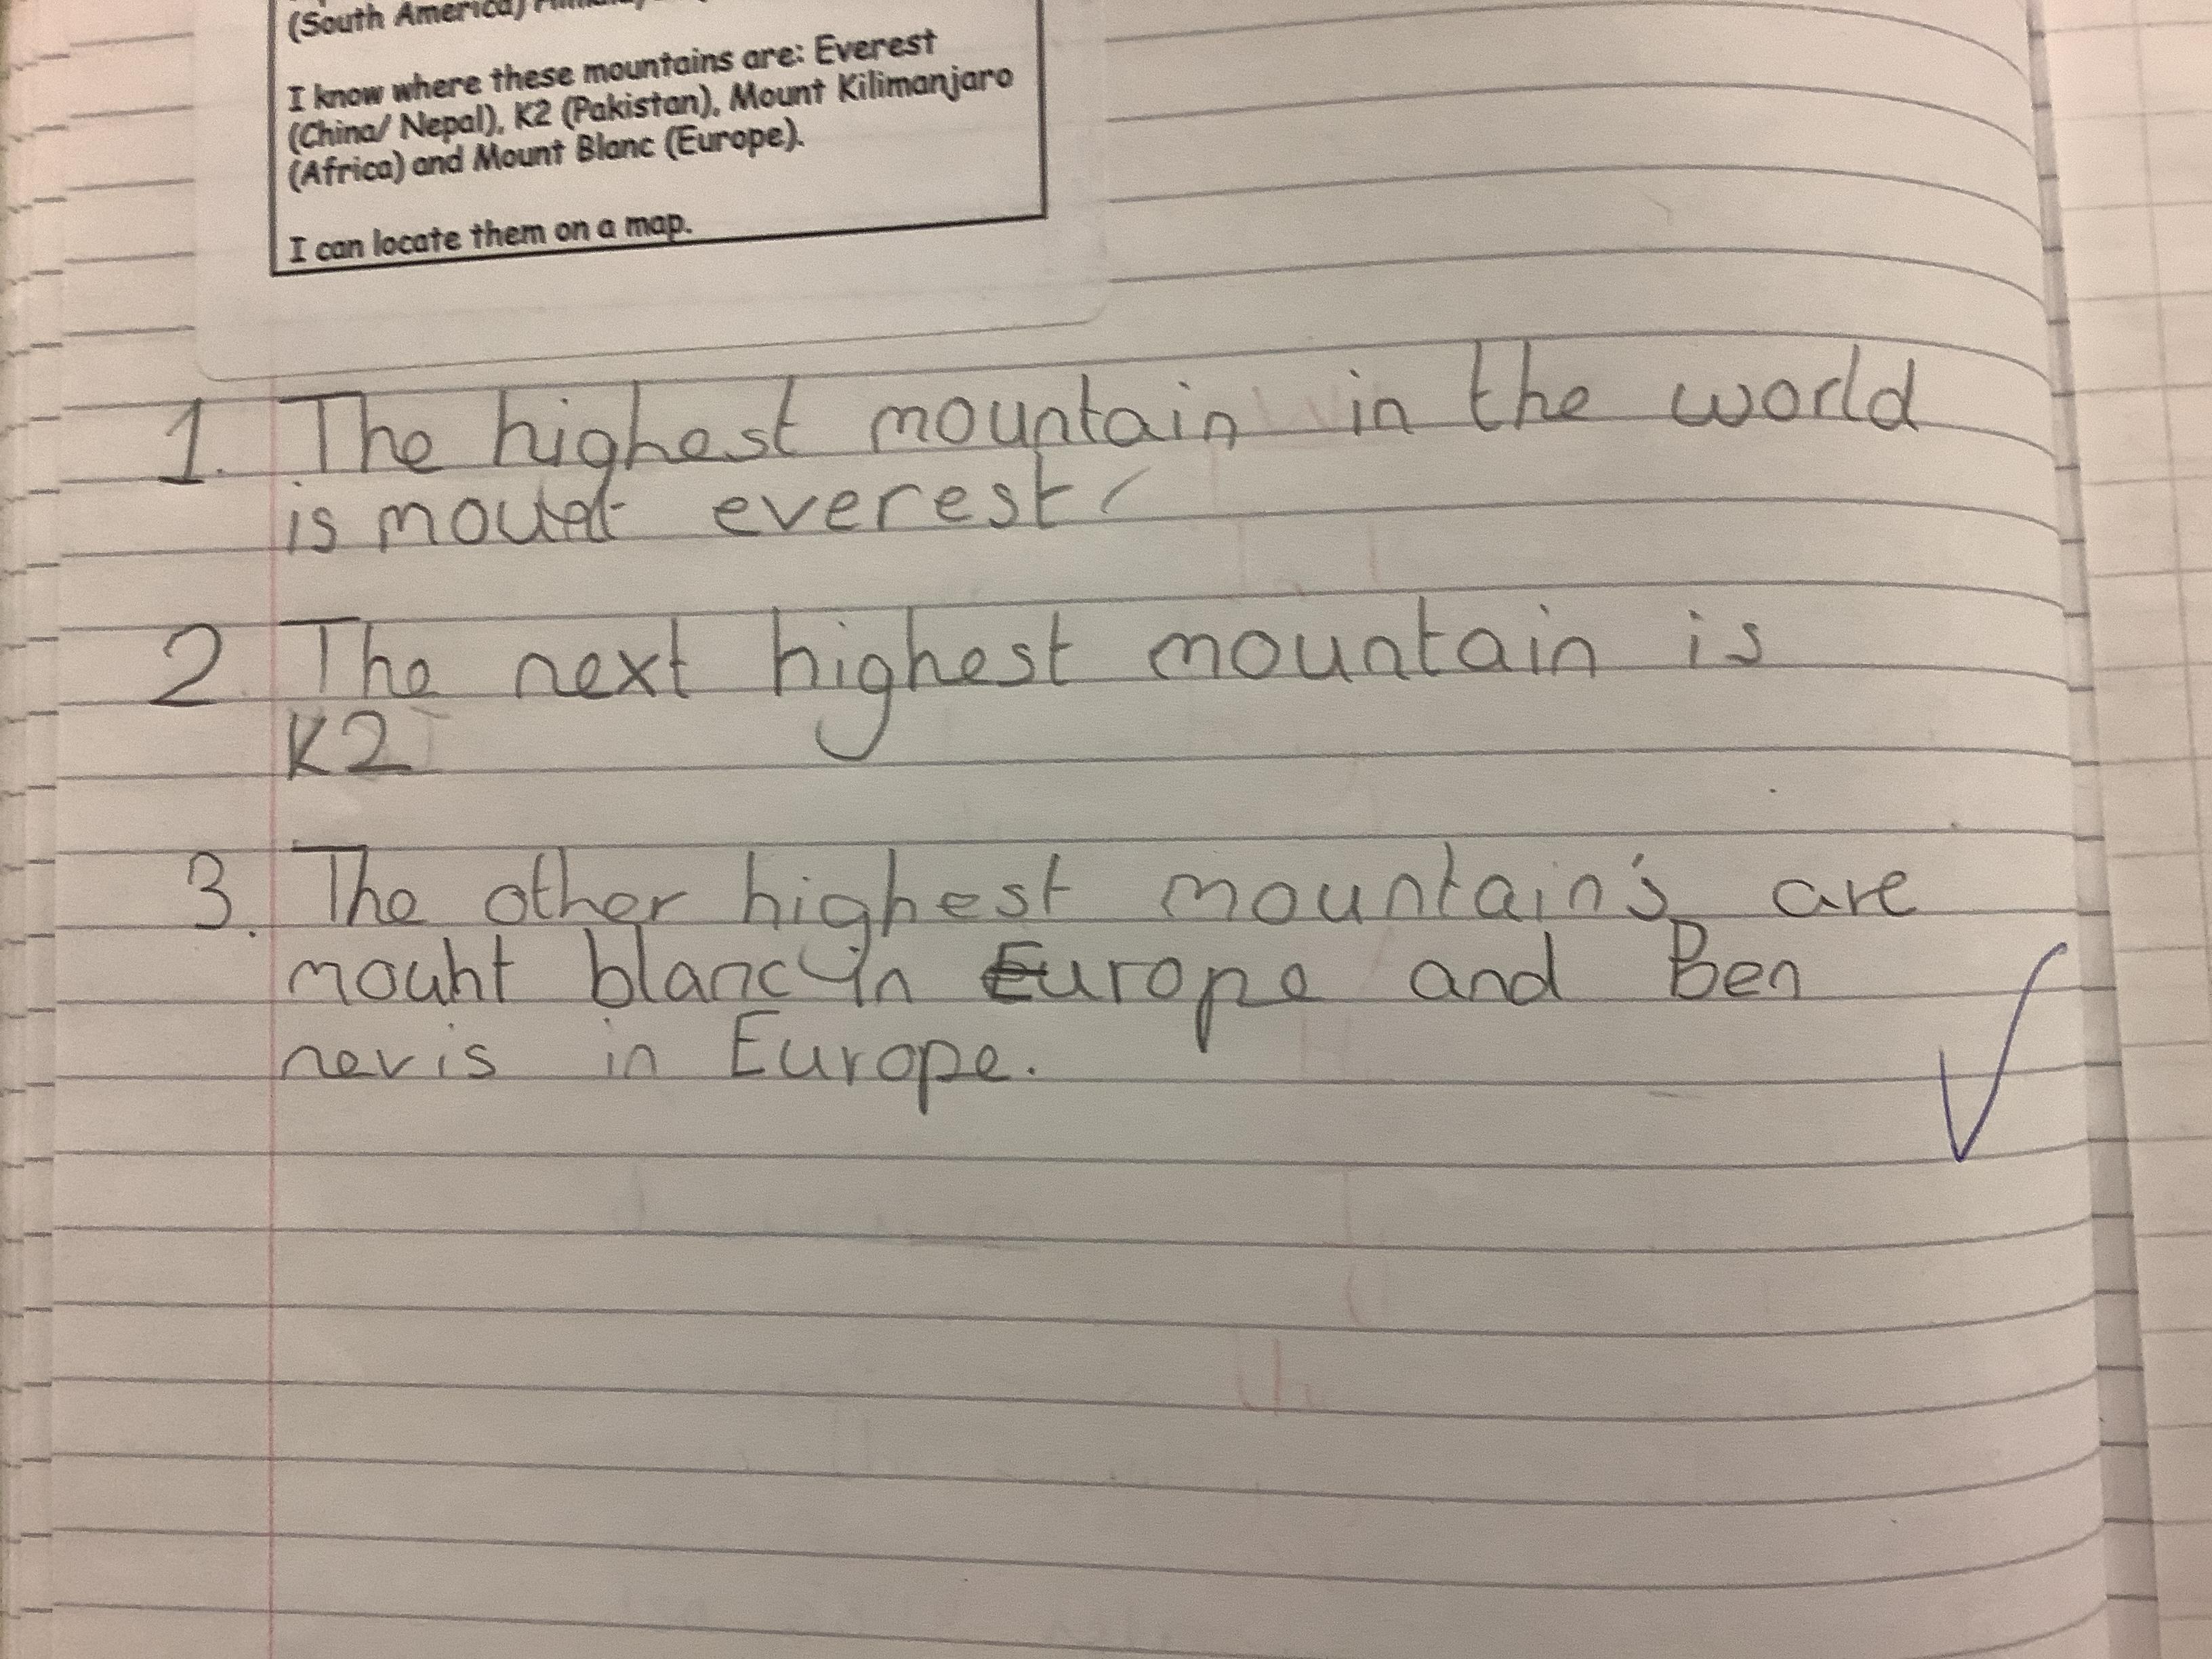 (South America)
I know where these mountains are: Everest
(China/ Nepal), K2 (Pakistan), Mount Kilimanjaro
(Africa) and Mount Blanc (Europe).
I can locate them on a map.
1. The highest mountain in the world
is mount everest
2. The next highest mountain is
K2
3. The other highest mountain's are
mount blanc in Europe and Ben
nevis in Europe.